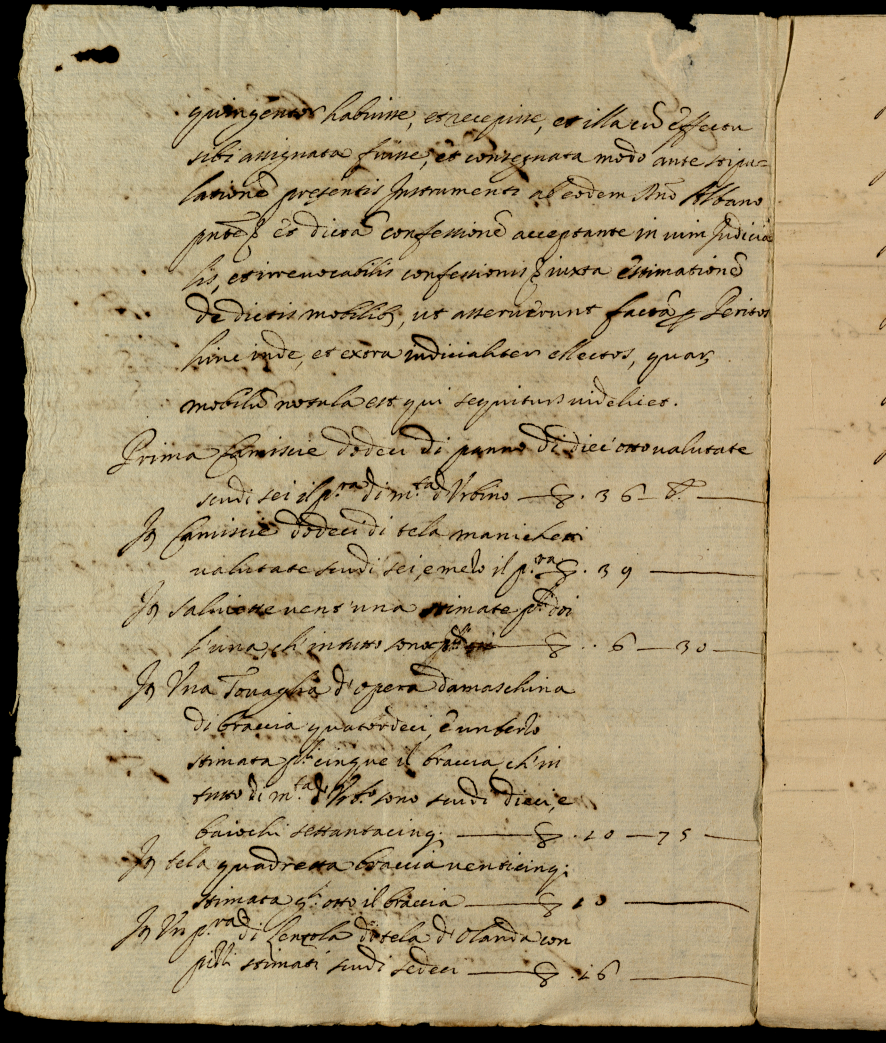 quingentos habuisse, et recepisse, et illa cũ effectu
sibi assignata fuisse, et consegnata modo ante stipu=
lationẽ presentis Instrumenti ab eodem Dño Albano
pñte et dictã confessionẽ acceptante in vim Judicia
lis, et irrevocabilis confessionis iuxta estimationẽ
de dictis mobilib; ut asseruerunt factã Peritos
hinc inde, et extra iudicialiter ellectos, quar;
mobiliũ notula est qui sequitur videlicet.
Prima Camiscie dodeci di panno di dieci otto valutate
scudi sei il p.ra di m.ta d'Urbino — 36 —
It Camiscie dodeci di tela manichetti
valutate scudi sei, e mezo il p.ra . 39 —
It Salviette vent'una stimate doi
l'una, ch'in tutto sono — 6 — 30 —
It Una Tovaglia d'opera damaschina
di braccia quatordeci, e un terzo
stimata cinque il braccia, ch'in
tutto di m.ta d'Urb.o sono scudi dieci, e
baiochi settantacinq; — . 10 — 75 —
It tela quadretta braccia venticinq;
stimata otto il braccia — 10 —
It Un p.ra di Lenzola di tela d'Olanda con
stimati scudi sedeci — . 16 —